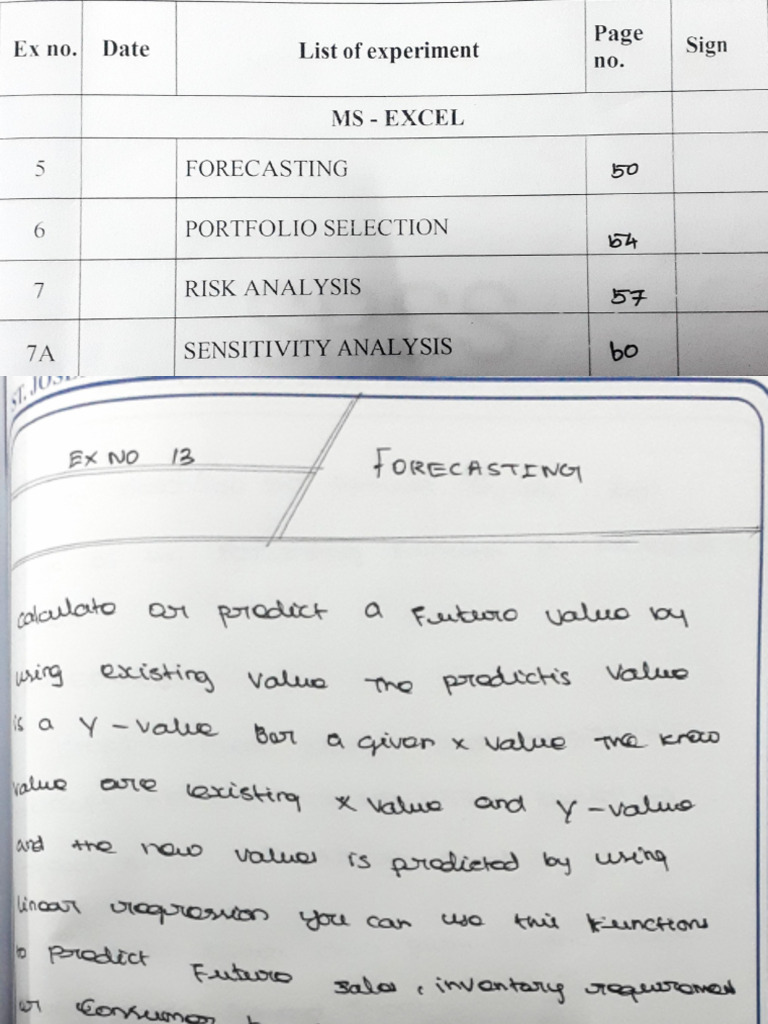 Ex no. Date List of experiment Page no. Sign
MS - EXCEL
5 FORECASTING 50
6 PORTFOLIO SELECTION 54
7 RISK ANALYSIS 57
7A SENSITIVITY ANALYSIS 60
ST. JOSE
EX NO 13 FORECASTING
calculate or predict a Future value by
using existing value The predictis value
is a Y-value For a given x value The know
value are existing x value and Y-value
and the new values is predicted by using
linear regression you can use this Functions
to predict Future sales, inventory requirement
or Consumer